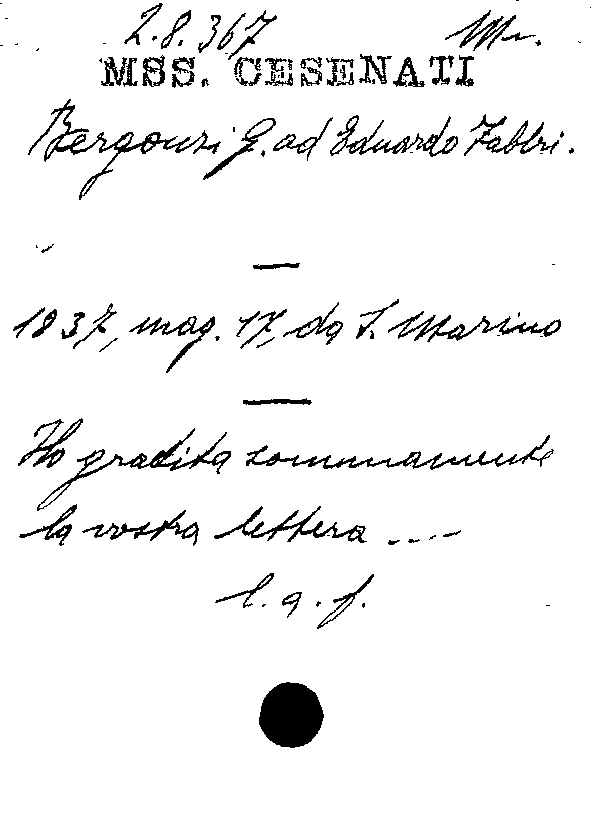 2.8.367 Mn.
MSS. CESENATI
Bergonzi G. ad Eduardo Fabbri.
1837, mag. 17, da S. Marino
Ho gradita sommamente
la vostra lettera ....
l. a. f.